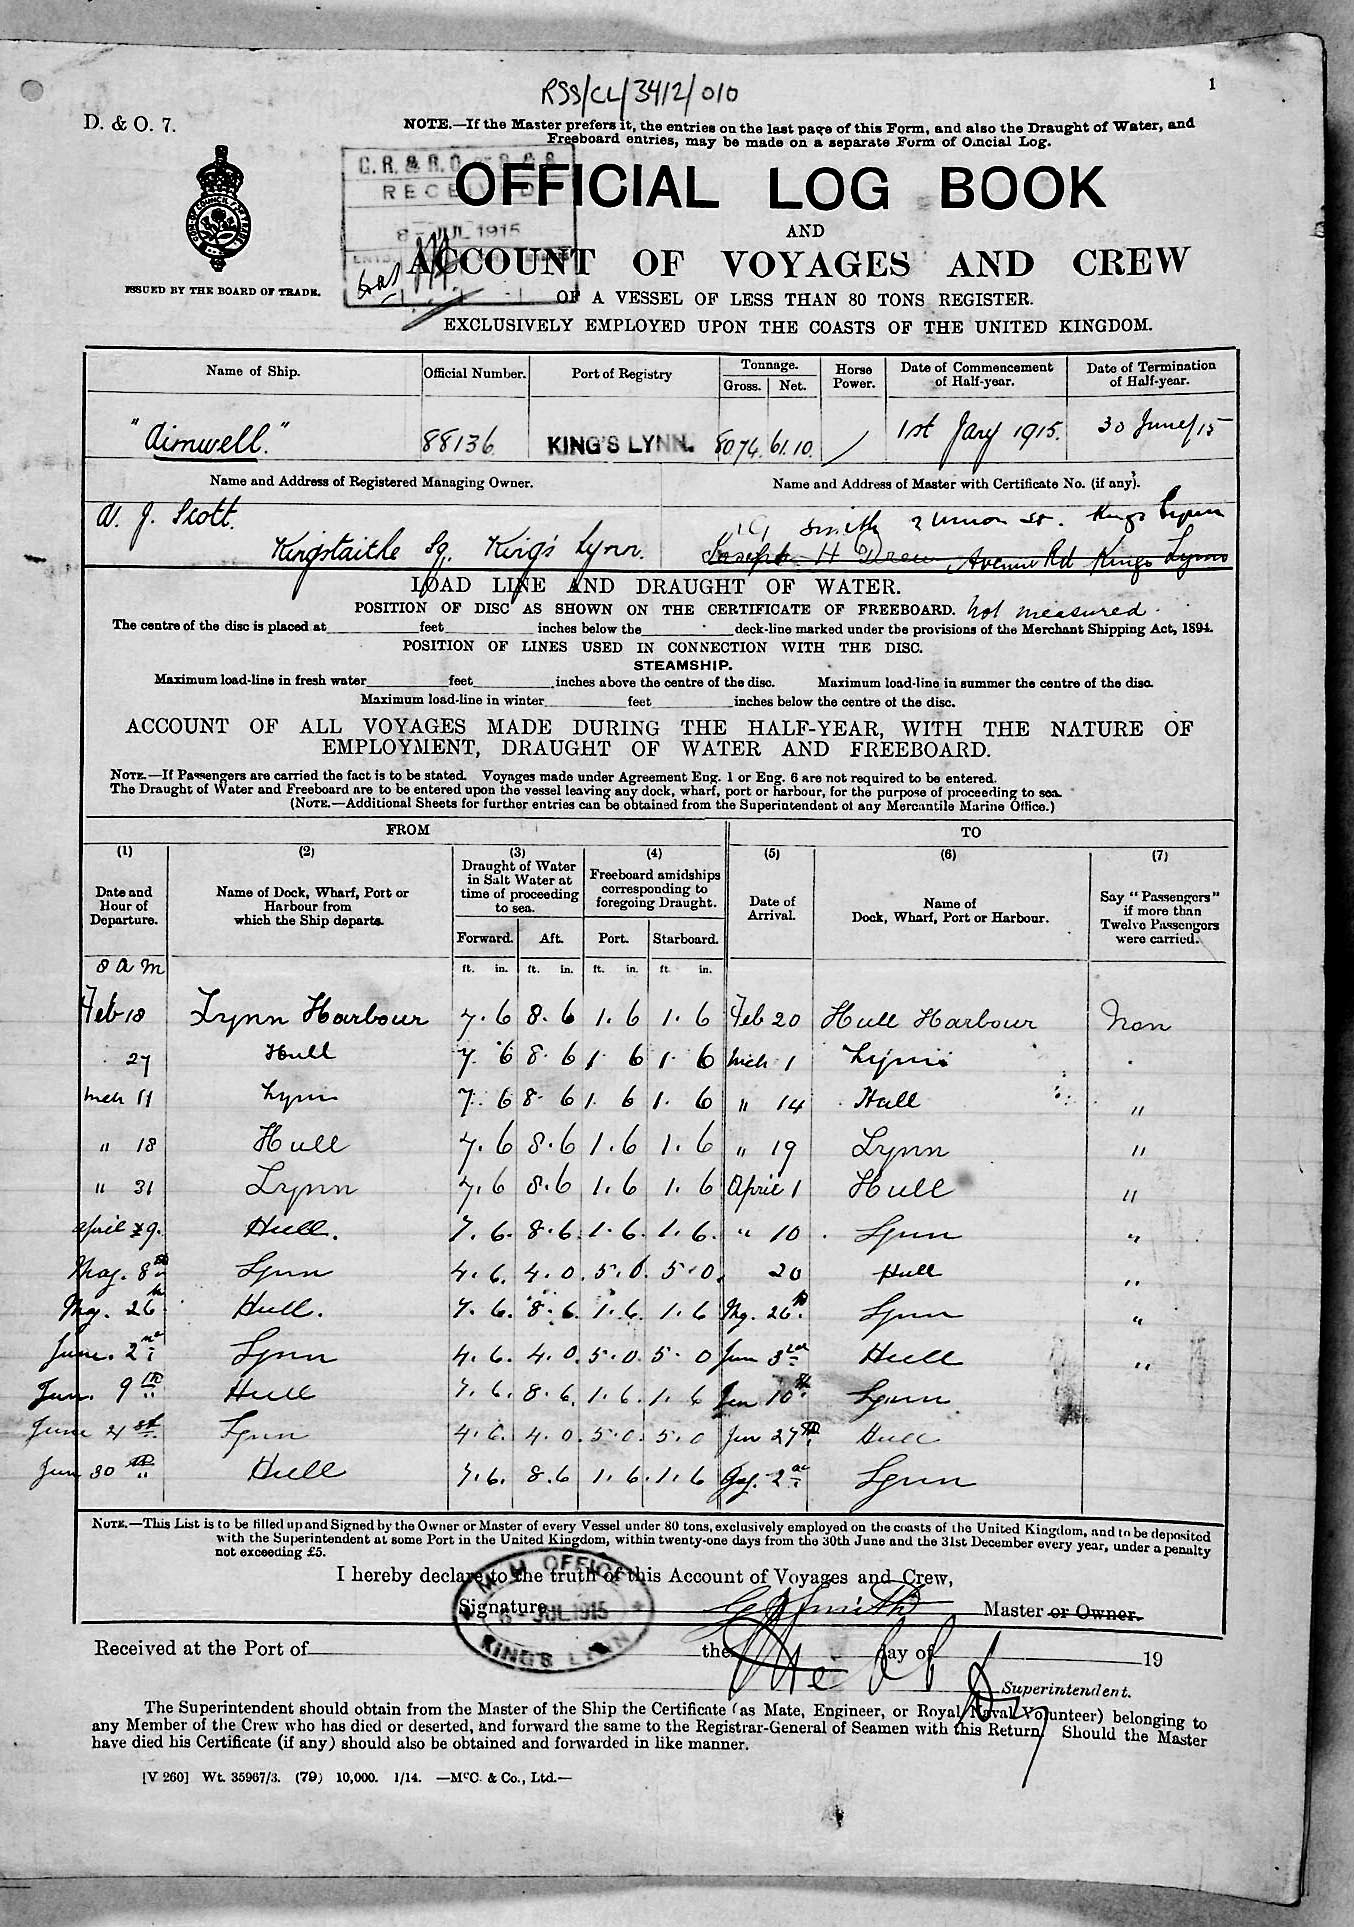 RSS/CL/3412/010
1
D. & O. 7.
NOTE.—If the Master prefers it, the entries on the last page of this Form, and also the Draught of Water, and
Freeboard entries, may be made on a separate Form of Official Log.
RECEIVED
8 - JUL 1915
OFFICIAL LOG BOOK
AND
ACCOUNT OF VOYAGES AND CREW
ISSUED BY THE BOARD OF TRADE.
OF A VESSEL OF LESS THAN 80 TONS REGISTER.
EXCLUSIVELY EMPLOYED UPON THE COASTS OF THE UNITED KINGDOM.
Name of Ship. Official Number. Port of Registry Tonnage. Gross. Net. Horse Power. Date of Commencement of Half-year. Date of Termination of Half-year.
"Aimwell." 88136 KING'S LYNN. 80.74 61.10 / 1st Jany 1915. 30 June/15
Name and Address of Registered Managing Owner. Name and Address of Master with Certificate No. (if any).
W. J. Scott. Smith 2 Union St. Kings Lynn
Kingstaithe Sq. King's Lynn. Joseph H Drew Avenue Rd Kings Lynn
LOAD LINE AND DRAUGHT OF WATER.
POSITION OF DISC AS SHOWN ON THE CERTIFICATE OF FREEBOARD. Not measured.
The centre of the disc is placed at feet inches below the deck-line marked under the provisions of the Merchant Shipping Act, 1894.
POSITION OF LINES USED IN CONNECTION WITH THE DISC.
STEAMSHIP.
Maximum load-line in fresh water feet inches above the centre of the disc. Maximum load-line in summer the centre of the disc.
Maximum load-line in winter feet inches below the centre of the disc.
ACCOUNT OF ALL VOYAGES MADE DURING THE HALF-YEAR, WITH THE NATURE OF
EMPLOYMENT, DRAUGHT OF WATER AND FREEBOARD.
NOTE.—If Passengers are carried the fact is to be stated. Voyages made under Agreement Eng. 1 or Eng. 6 are not required to be entered.
The Draught of Water and Freeboard are to be entered upon the vessel leaving any dock, wharf, port or harbour, for the purpose of proceeding to sea.
(NOTE.—Additional Sheets for further entries can be obtained from the Superintendent of any Mercantile Marine Office.)
FROM TO
(1) (2) (3) (4) (5) (6) (7)
Date and Hour of Departure. Name of Dock, Wharf, Port or Harbour from which the Ship departs. Draught of Water in Salt Water at time of proceeding to sea. Freeboard amidships corresponding to foregoing Draught. Date of Arrival. Name of Dock, Wharf, Port or Harbour. Say "Passengers" if more than Twelve Passengers were carried.
Forward. Aft. Port. Starboard.
8 a m ft. in. ft. in. ft. in. ft. in.
Feb 18 Lynn Harbour 7. 6 8. 6 1. 6 1. 6 Feb 20 Hull Harbour Non
27 Hull 7. 6 8. 6 1 6 1. 6 Mch 1 Lynn
Mch 11 Lynn 7. 6 8. 6 1. 6 1. 6 " 14 Hull "
" 18 Hull 7. 6 8. 6 1. 6 1. 6 " 19 Lynn "
" 31 Lynn 7. 6 8. 6 1. 6 1. 6 April 1 Hull "
April 9. Hull. 7. 6. 8. 6. 1. 6. 1. 6. " 10 Lynn "
May. 8th Lynn 4. 6. 4. 0. 5. 0. 5. 0. 20 Hull "
May. 26th Hull. 7. 6. 8. 6. 1. 6. 1. 6 My. 26th. Lynn "
June. 2nd Lynn 4. 6. 4. 0. 5. 0. 5. 0 Jun 3rd Hull "
Jun. 9th Hull 7. 6. 8. 6. 1. 6. 1. 6 Jun 10th. Lynn
June 21st Lynn 4. 6. 4. 0. 5. 0. 5. 0 Jun 27th Hull
Jun 30th Hull 7. 6. 8. 6 1. 6. 1. 6 2nd Lynn
NOTE.—This List is to be filled up and Signed by the Owner or Master of every Vessel under 80 tons, exclusively employed on the coasts of the United Kingdom, and to be deposited
with the Superintendent at some Port in the United Kingdom, within twenty-one days from the 30th June and the 31st December every year, under a penalty
not exceeding £5.
I hereby declare to the truth of this Account of Voyages and Crew,
Signature Smith Master or Owner.
M.M. OFFICE
6 - JUL 1915
KING'S LYNN
Received at the Port of the day of 19
Superintendent.
The Superintendent should obtain from the Master of the Ship the Certificate (as Mate, Engineer, or Royal Naval Volunteer) belonging to
any Member of the Crew who has died or deserted, and forward the same to the Registrar-General of Seamen with this Return. Should the Master
have died his Certificate (if any) should also be obtained and forwarded in like manner.
[V 260] Wt. 35967/3. (79) 10,000. 1/14. —McC. & Co., Ltd.—